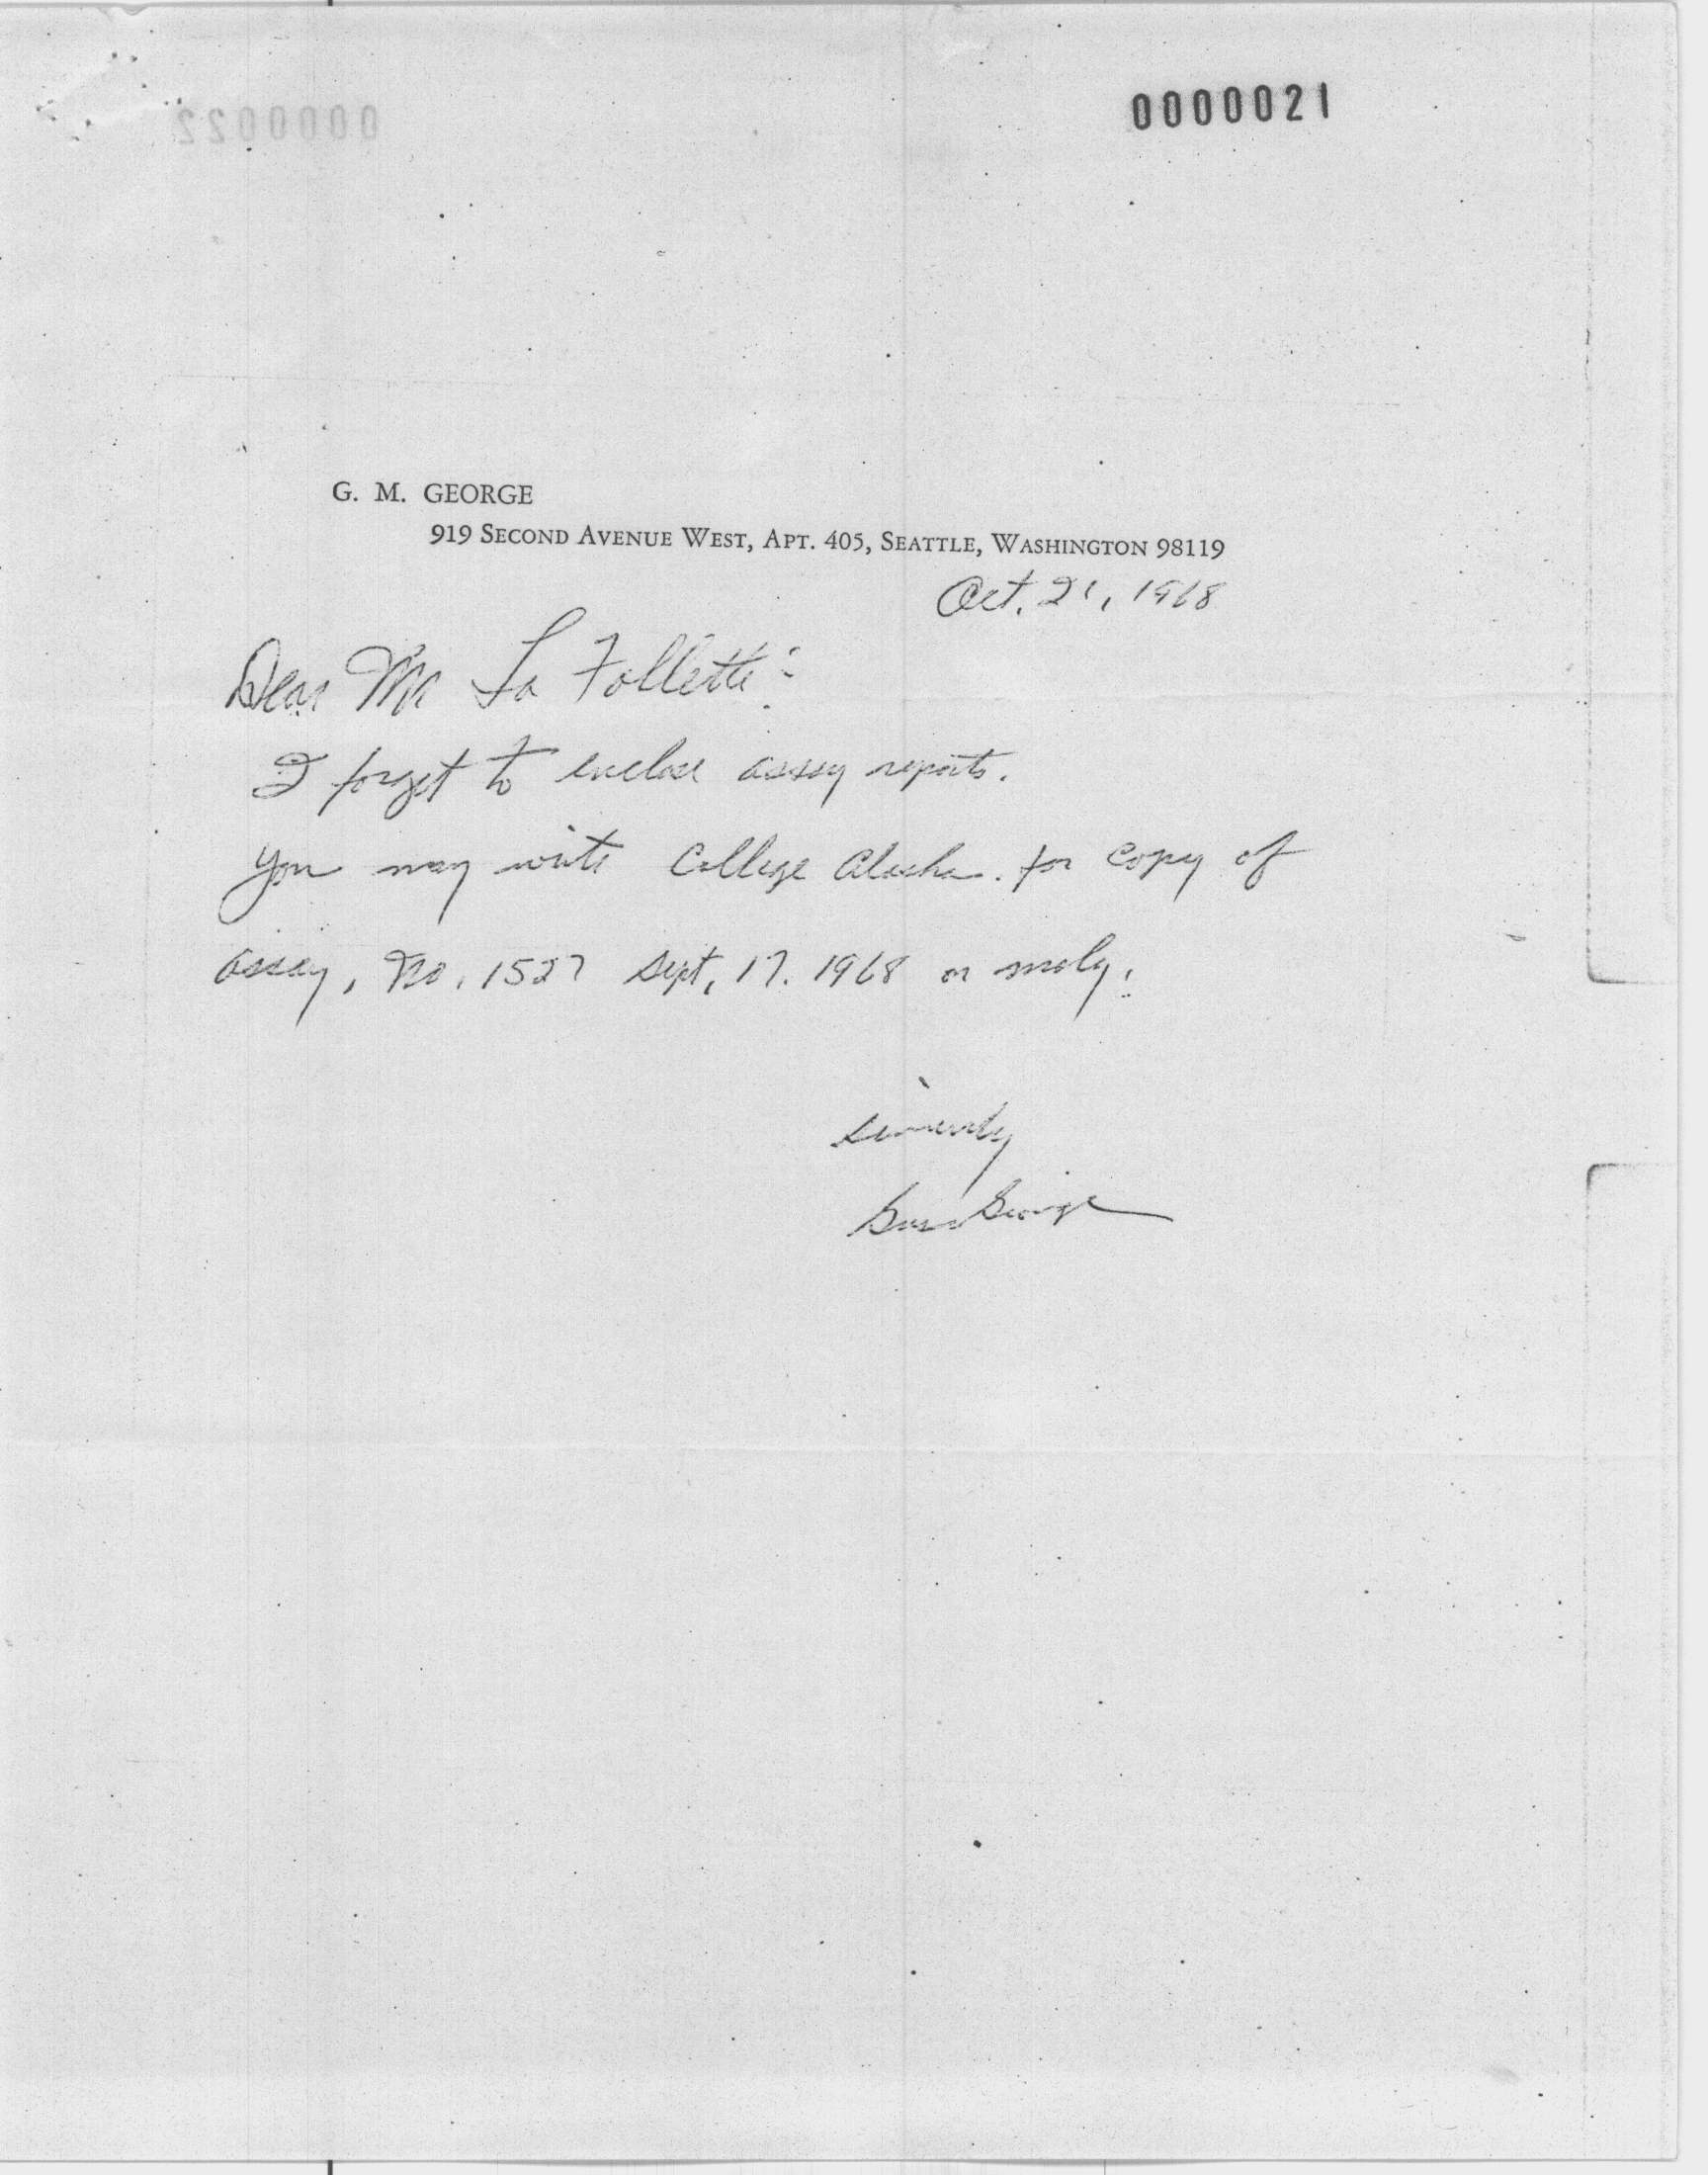 0000022
0000021
G. M. GEORGE
919 SECOND AVENUE WEST, APT. 405, SEATTLE, WASHINGTON 98119
Oct. 21, 1968
Dear Mr La Follette:
I forget to enclose assay reports.
You may write College Alaska. for copy of
assay, No. 1527 Sept, 17. 1968 on moly.
Sincerely
Gus George